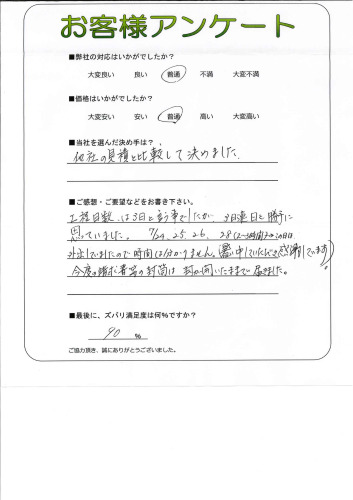 お客様アンケート
■弊社の対応はいかがでしたか？
大変良い 良い 普通 不満 大変不満
■価格はいかがでしたか？
大変安い 安い 普通 高い 大変高い
■当社を選んだ決め手は？
他社の見積と比較して決めました.
■ご感想・ご要望などをお書き下さい。
工程日数は3日と言う事でしたが、3日連日と勝手に
思っていました。 7/24, 25, 26, 28 (2〜3時間)→この日は
外出していましたので時間は分かりません。(暑い中していただき感謝しています)
今度の請求書等の封筒は封が開いたままで届きました。
■最後に、ズバリ満足度は何％ですか？
90 %
ご協力頂き、誠にありがとうございました。